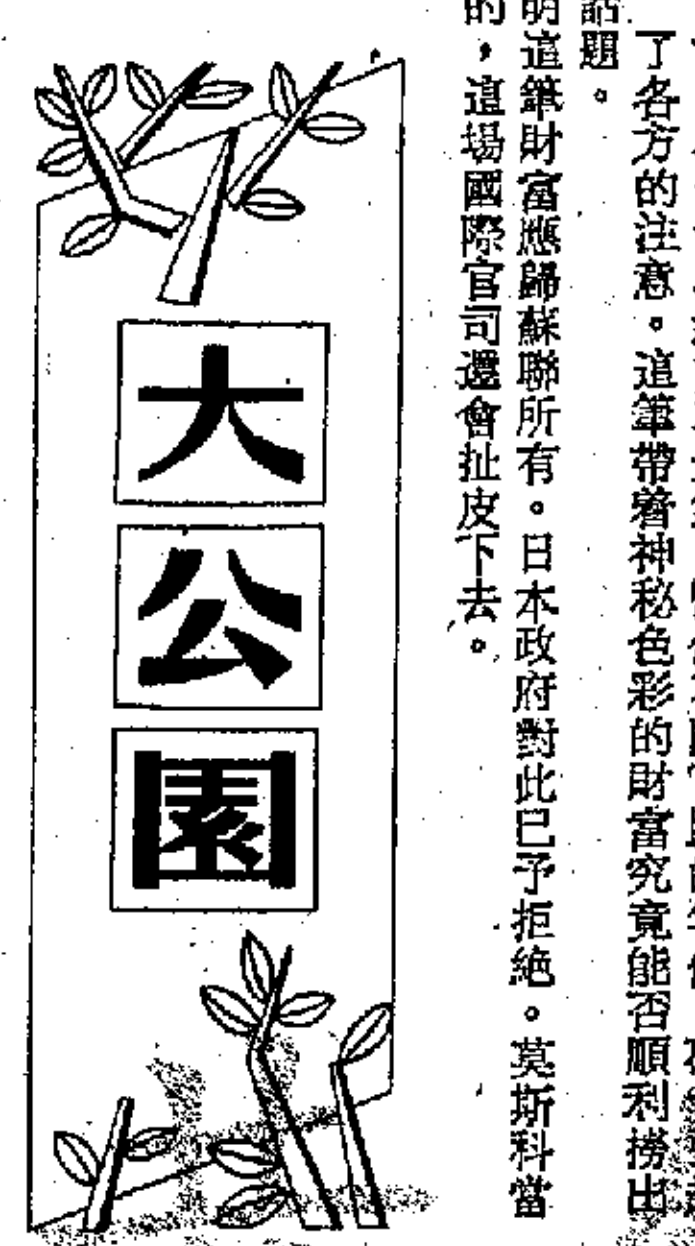 了各方的注意。這筆帶着神秘色彩的財富究竟能否順利撈出
話題。
明這筆財富應歸蘇聯所有。日本政府對此已予拒絕。莫斯科當
的,這場國際官司還會扯皮下去。
大公園